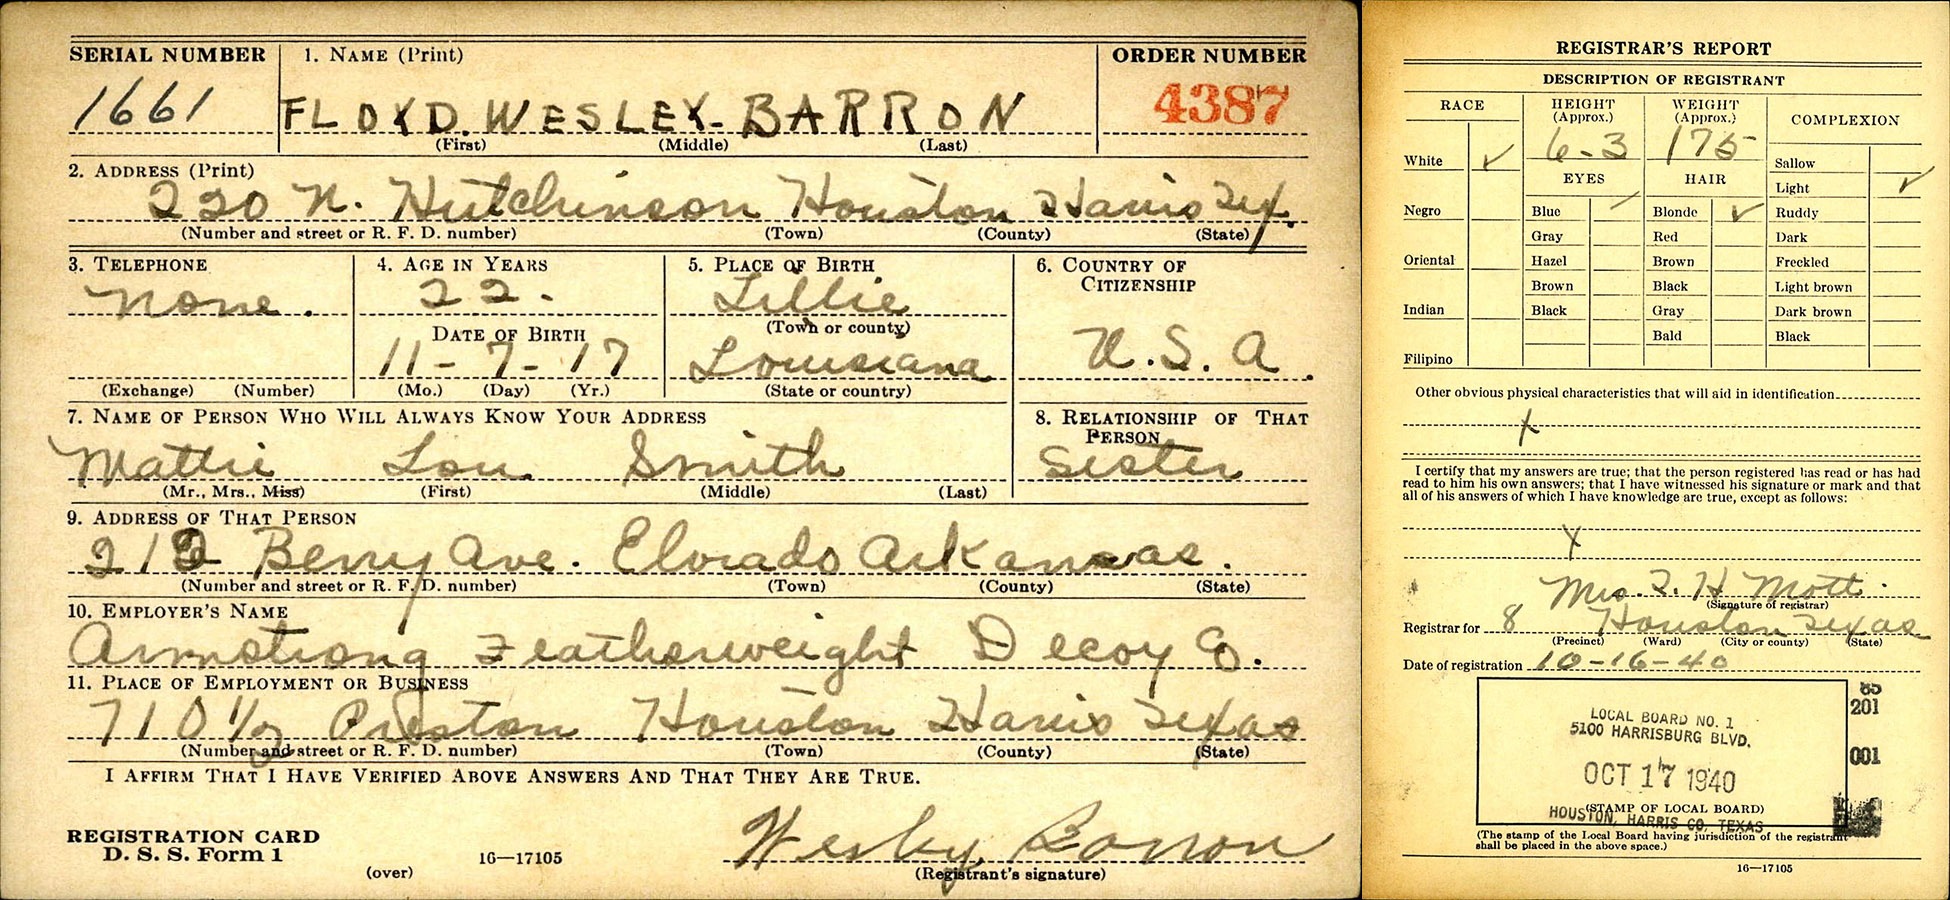 SERIAL NUMBER 1. NAME (Print) ORDER NUMBER
1661 FLOYD. WESLEY- BARRON 4387
(First) (Middle) (Last)
2. ADDRESS (Print)
220 N. Hutchinson Houston Harris Tex.
(Number and street or R. F. D. number) (Town) (County) (State)
3. TELEPHONE 4. AGE IN YEARS 5. PLACE OF BIRTH 6. COUNTRY OF CITIZENSHIP
None. 22. Lillie
DATE OF BIRTH (Town or county)
11-7-17 Louisiana U.S.A.
(Exchange) (Number) (Mo.) (Day) (Yr.) (State or country)
7. NAME OF PERSON WHO WILL ALWAYS KNOW YOUR ADDRESS 8. RELATIONSHIP OF THAT PERSON
Mattie Lou Smith Sister
(Mr., Mrs., Miss) (First) (Middle) (Last)
9. ADDRESS OF THAT PERSON
212 Berry Ave. Elorado Arkansas.
(Number and street or R. F. D. number) (Town) (County) (State)
10. EMPLOYER'S NAME
Armstrong Featherweight Decoy Co.
11. PLACE OF EMPLOYMENT OR BUSINESS
710 1/2 Preston Houston Harris Texas
(Number and street or R. F. D. number) (Town) (County) (State)
I AFFIRM THAT I HAVE VERIFIED ABOVE ANSWERS AND THAT THEY ARE TRUE.
REGISTRATION CARD
D. S. S. Form 1 16—17105 Wesley Barron
(over) (Registrant's signature)
REGISTRAR'S REPORT
DESCRIPTION OF REGISTRANT
RACE HEIGHT (Approx.) WEIGHT (Approx.) COMPLEXION
White ✓ 6-3 175 Sallow
EYES HAIR Light ✓
Negro Blue ✓ Blonde ✓ Ruddy
Gray Red Dark
Oriental Hazel Brown Freckled
Brown Black Light brown
Indian Black Gray Dark brown
Bald Black
Filipino
Other obvious physical characteristics that will aid in identification
X
I certify that my answers are true; that the person registered has read or has had
read to him his own answers; that I have witnessed his signature or mark and that
all of his answers of which I have knowledge are true, except as follows:
X
Mrs. T. H. Mott.
(Signature of registrar)
Registrar for 8 Houston Texas
(Precinct) (Ward) (City or county) (State)
Date of registration 10-16-40
85
201
001
LOCAL BOARD NO. 1
5100 HARRISBURG BLVD.
OCT 17 1940
(STAMP OF LOCAL BOARD)
HOUSTON, HARRIS CO, TEXAS
(The stamp of the Local Board having jurisdiction of the registrant
shall be placed in the above space.)
16—17105